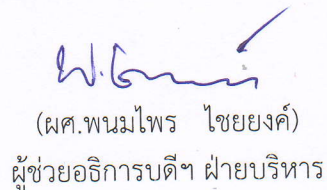 (ผศ.พนมไพร ไชยยงค์)
ผู้ช่วยอธิการบดีฯ ฝ่ายบริหาร